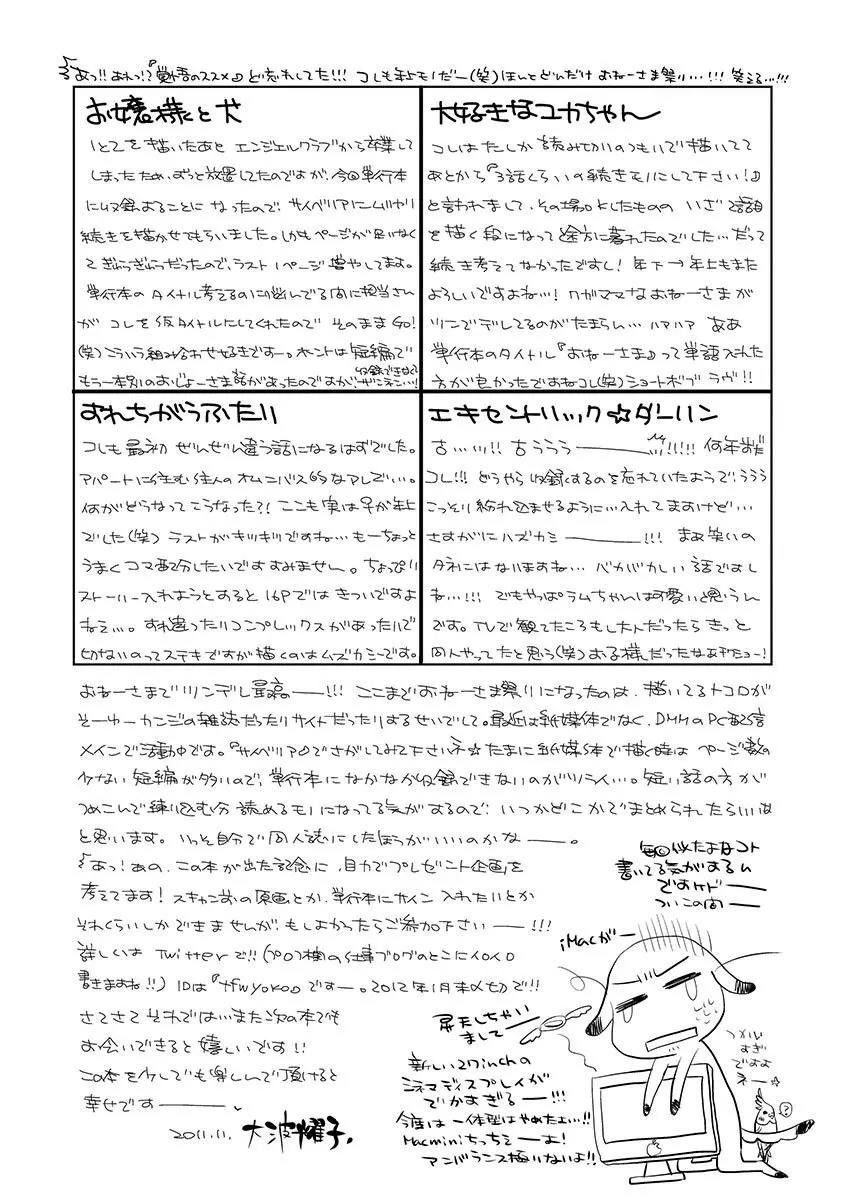 あっ!! あれっ!?『覚悟のススメ』ど忘れしてた!!! コレも年上モノだー(笑)ほんとどんだけ おねーさま祭り…!!! 笑える…!!!
お嬢様と犬
1と2を描いたあと エンジェルクラブから卒業して
しまったため、ずっと放置してたのですが、今回単行本
に収録することに なったので、サイベリアにムリヤリ
続きを描かせてもらいました。しかもページが足りなく
てぎゅうぎゅうだったので、ラスト1ページ増やしてます。
単行本の タイトル考えるのに悩んでる間に担当さん
が コレを仮タイトルにしてくれたので そのままGO!
(笑)こういう組み合わせ好きですー。ホントは短編で
もう一本別のおじょーさま話があったのですが、収録できなくてザンネン…!
大好きなユカちゃん
コレはたしか読み切りのつもりで描いてて
あとから『3話くらいの続きモノにして下さい!』
と言われまして、その場OKしたものの いざ2話目
を描く段になって途方に暮れたのでした…だって
続き考えてなかったですし! 年下→年上もまた
よろしいですよね…! ワガママなおねーさまが
ツンでデレしてるのがたまらん… ハァハァ ああ
単行本のタイトル『おねーさま』って単語入れた
方が良かったですねコレ(笑)ショートボブ ラヴ!!
すれちがうふたり
コレも最初 ぜんぜん違う話になるはずでした。
アパートに住む住人のオムニバス的なアレで…。
何がどうなってこうなった?! ここも実は♀が年上
でした(笑) ラストがギッギツですね… もーちょっと
うまくコマ配分したいですすみません。ちょっぴり
ストーリー入れようとすると16Pではきついですよ
ねぇ…。すれ違ったりコンプレックスがあったりで
切ないのってステキですが描くのはムズカシーです。
エキセントリック☆ダーリン
古…ッ!! 古うううーーッ!!!!! 何年前だ
コレ!!! どうやら収録するのを忘れていたようで、ううう
こっそり紛れ込ませるように…入れてますけど…
さすがにハズカシーーー!!! まぁ笑いの
タネにはなりますね… バカバカしい話ですし
ね…!!! でもやっぱラムちゃんは可愛いと思うん
です。TVで観てたころもし大人だったらきっと
同人やってたと思う(笑)
おねーさまでツンデレ最高ーー!!! ここまでおねーさま祭りになったのは、描いてるトコロが
そーゆーカンジの雑誌だったりサイトだったりするせいでして。最近は紙媒体でなく、DMMのPC配信
メインで活動中です。『サイベリア』でさがしてみて下さいネ☆たまに紙媒体で描く時は ページ数の
少ない短編が多いので、単行本になかなか収録できないのがツライ…。短い話の方が
つめこんで練り込む分 読めるモノになってる気がするので、いつかどこかでまとめられたらいいな
と思います。いっそ自分で同人誌にしたほうがいいのかなーー。
あっ!あの、この本が出た記念に、自力でプレゼント企画を
考えてます! スキャン前の原画とか、単行本にサイン入れたりとか
それくらいしかできませんが、もしよかったらご参加下さいーー!!!
詳しくは Twitterで!!(プロフ欄の仕事ブログのとこにイロイロ
書きますね!!) IDは『tfwyoko』ですー。2012年1月末〆切で!!
さてさて それでは…また次の本でも
お会いできると嬉しいです!!
この本を少しでも楽しんで頂けると
幸せですーー。
2011.11. 大波耀子。
毎回似たよなコト
書いてる気がするん
ですけドーー
ついこの間ーー
iMacがー
昇天しちゃい
ましてーー
新しい27inchの
シネマディスプレイが
でかすぎるーー!!!
今度は一体型はやめたよ…!!
Macminiちっちぇーよ!
アンバランス極りないよ!!
つメル
すぎ
ですよ
ネー☆
?